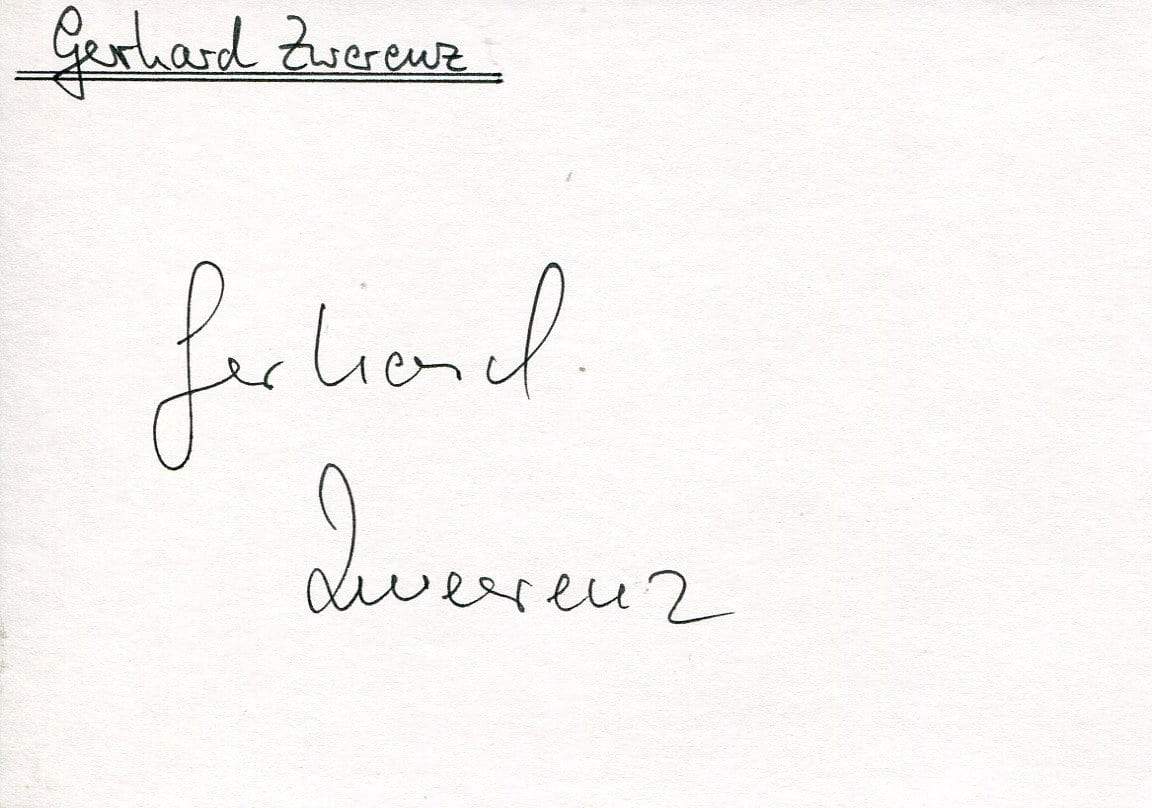 Gerhard Zwerenz
Gerhard
Zwerenz